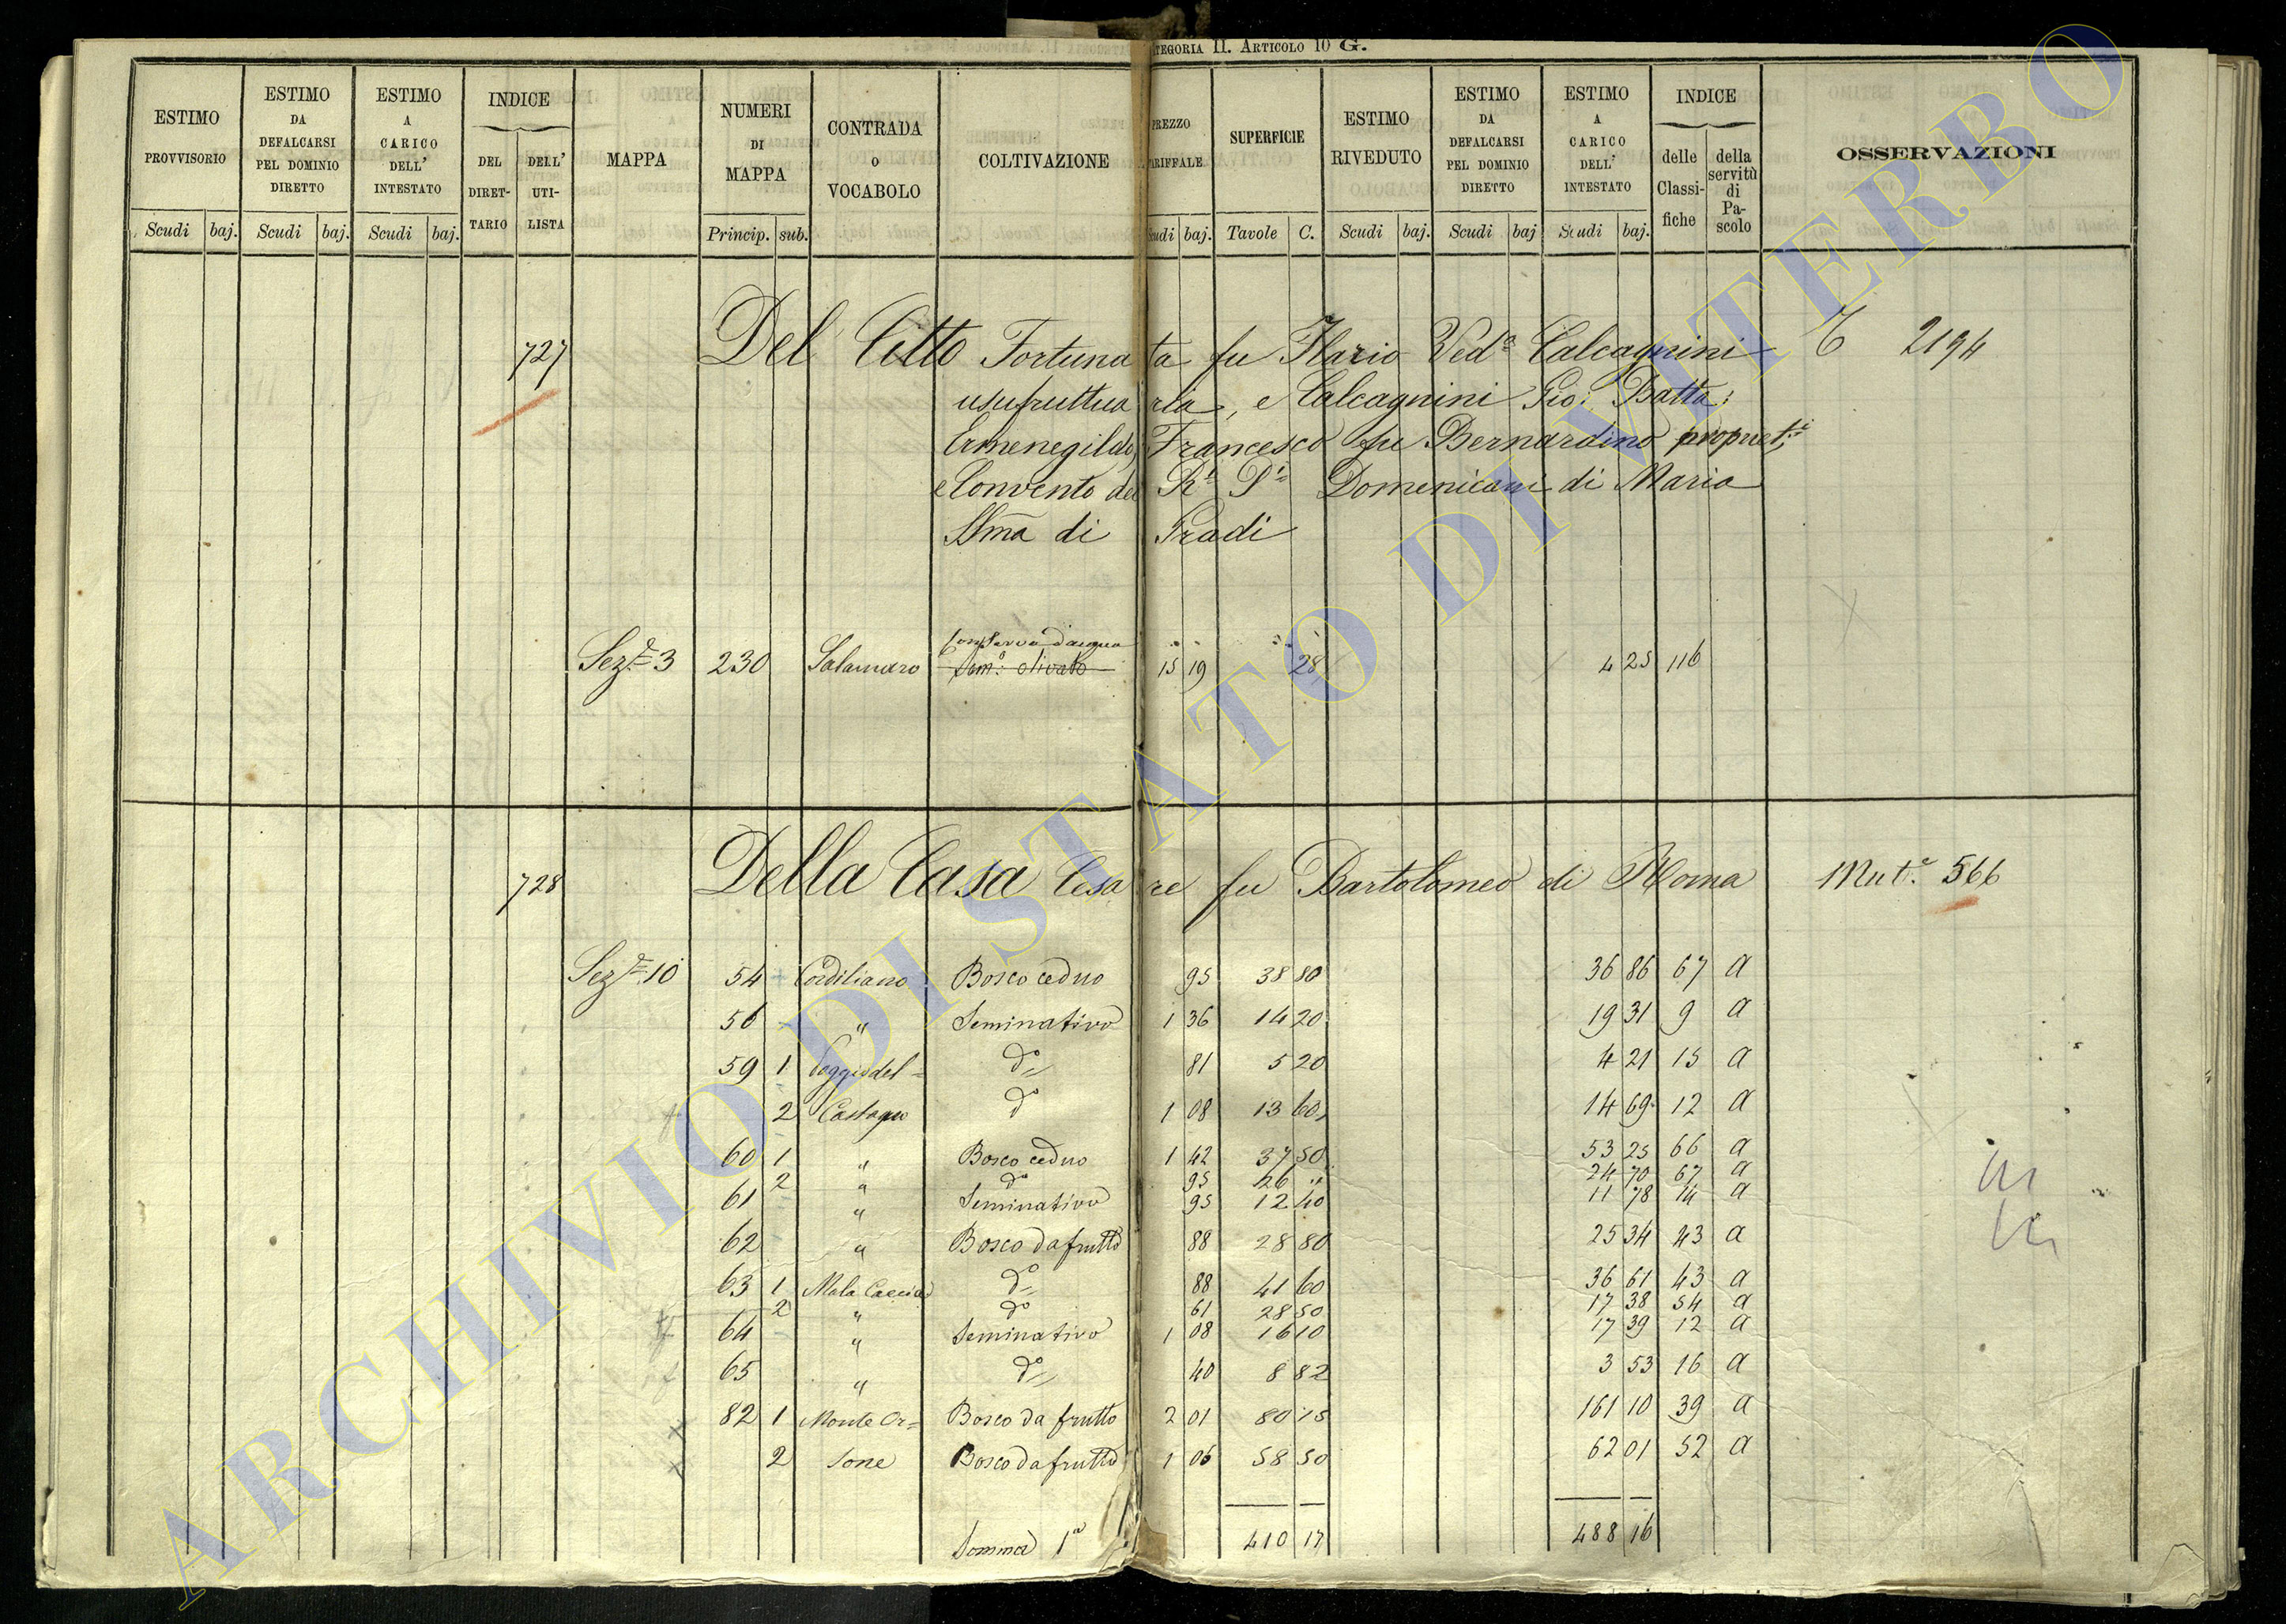 TEGORIA II. ARTICOLO 10 G.
ESTIMO PROVVISORIO Scudi baj.
ESTIMO DA DEFALCARSI PEL DOMINIO DIRETTO Scudi baj.
ESTIMO A CARICO DELL' INTESTATO Scudi baj.
INDICE DEL DIRET-TARIO DELL' UTI-LISTA
MAPPA
NUMERI DI MAPPA Princip. sub.
CONTRADA O VOCABOLO
COLTIVAZIONE
PREZZO TARIFFALE Scudi baj.
SUPERFICIE Tavole C.
ESTIMO RIVEDUTO Scudi baj.
ESTIMO DA DEFALCARSI PEL DOMINIO DIRETTO Scudi baj
ESTIMO A CARICO DELL' INTESTATO Scudi baj.
INDICE delle Classi-fiche della servitù di Pa-scolo
OSSERVAZIONI
727 Del Citto Fortunata fu Ilario Ved.a Calcagnini 2194
usufruttuaria, e Calcagnini Gio: Batta:
Ermenegildo, Francesco fu Bernardino propriet.i
e Convento dei R.i P.i Domenicani di Maria
SSma di Gradi
Conserva d'acqua
Sez.e 3 230 Salamaro Sem.o olivato 15 19 28 4 25 116
728 Della Casa Cesare fu Bartolomeo di Roma Mut.e 566
Sez.e 10 54 Cordiliano Bosco ceduo 95 38 80 36 86 67 a
56 " Seminativo 1 36 14 20 19 31 9 a
59 1 Poggio del= d.o 81 5 20 4 21 15 a
2 Castagno d.o 1 08 13 60 14 69 12 a
60 1 " Bosco ceduo 1 42 37 50 53 25 66 a
2 " d.o 95 26 " 24 70 67 a
61 " Seminativo 95 12 40 11 78 14 a
62 " Bosco da frutto 88 28 80 25 34 43 a
63 1 Mala Caccia d.o 88 41 60 36 61 43 a
2 " d.o 61 28 50 17 38 54 a
64 " Seminativo 1 08 16 10 17 39 12 a
65 " d.o 40 8 82 3 53 16 a
82 1 Monte Or= Bosco da frutto 2 01 80 15 161 10 39 a
2 sone Bosco da frutto 1 06 58 50 62 01 52 a
Somma 1a 410 17 488 16
ARCHIVIO DI STATO DI VITERBO